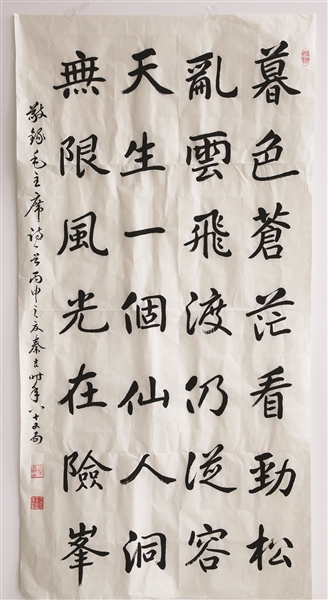 暮色蒼茫看勁松
亂雲飛渡仍從容
天生一個仙人洞
無限風光在險峯
敬錄毛主席詩一首丙申之夏秦